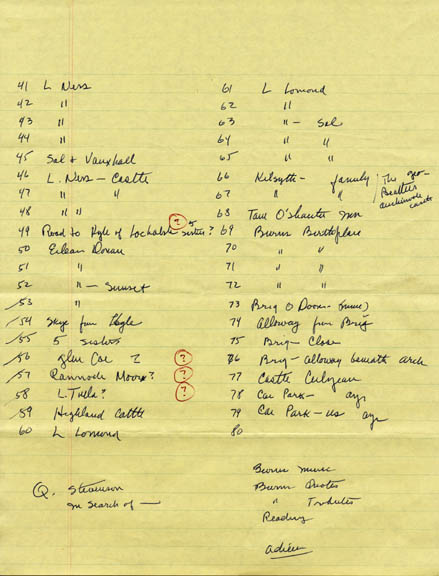 41 L Ness
42 "
43 "
44 "
45 Sal & Vauxhall
46 L. Ness - Castle
47 " "
48 " "
49 Road to Kyle of Lochalsh 5 sisters?
?
50 Eilean Donan
51 "
52 " - Sunset
53 "
54 Skye from Kyle
55 5 sisters
56 Glen Coe ? ?
57 Rannoch Moor? ?
58 L. Tulla? ?
59 Highland Cattle
60 L Lomond
Q. Stevenson
In search of —
61 L Lomond
62 "
63 " - Sal
64 " "
65 " "
66 Kilsyth - family
67 " "
The
Beatties
68 Tam O'Shanter Inn
69 Burns Birthplace
70 " "
71 " "
72 " "
73 Brig O Doon -
74 Alloway from Brig
75 Brig - Close
76 Brig - Alloway beneath arch
77 Castle Culzean
78 Car Park - Ayr
79 Car Park - us Ayr
80
Burns music
Burns Quotes
" Tributes
Reading
adieu